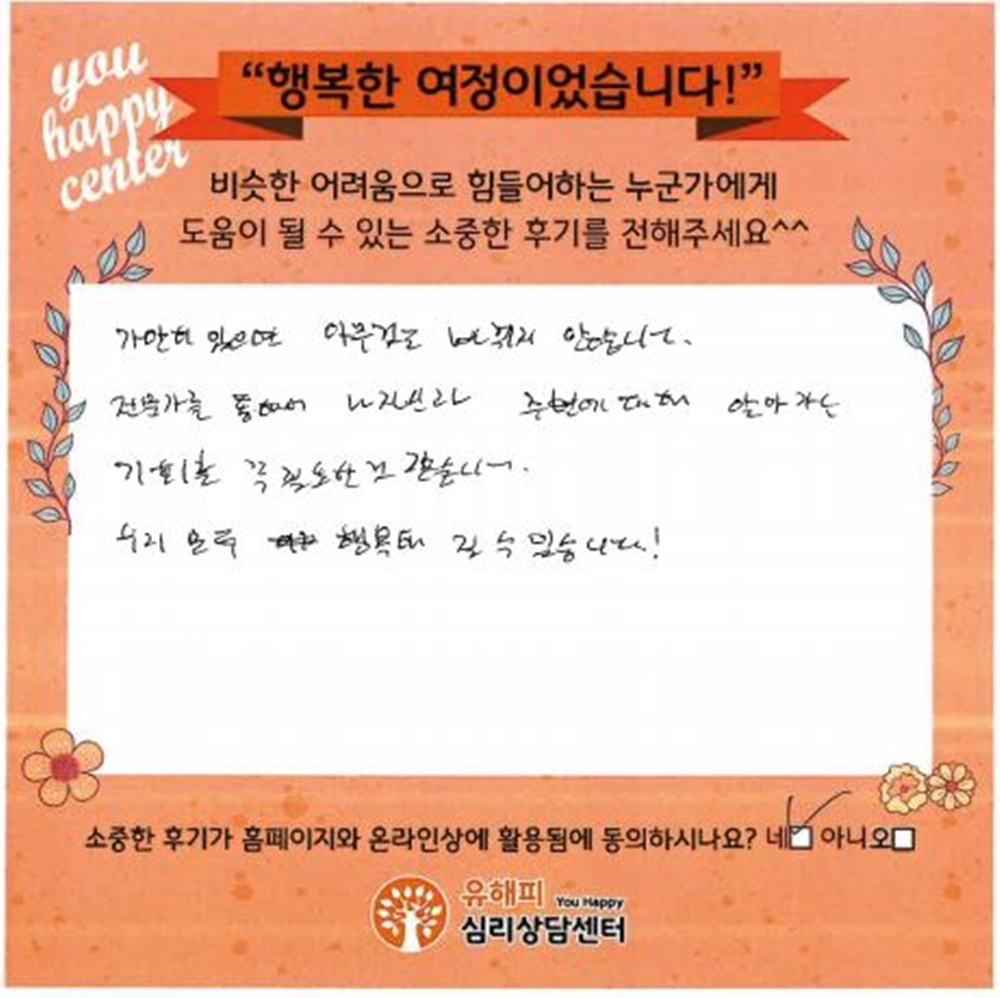 you
happy
center
“행복한 여정이었습니다!”
비슷한 어려움으로 힘들어하는 누군가에게
도움이 될 수 있는 소중한 후기를 전해주세요^^
가만히 있으면 아무것도 바뀌지 않습니다.
전문가를 통해서 나자신과 주변에 대해 알아가는
기회를 꼭 필요한 것 같습니다.
우리 모두 행복해 질 수 있습니다!
소중한 후기가 홈페이지와 온라인상에 활용됨에 동의하시나요? 네 아니오
유해피 You Happy
심리상담센터